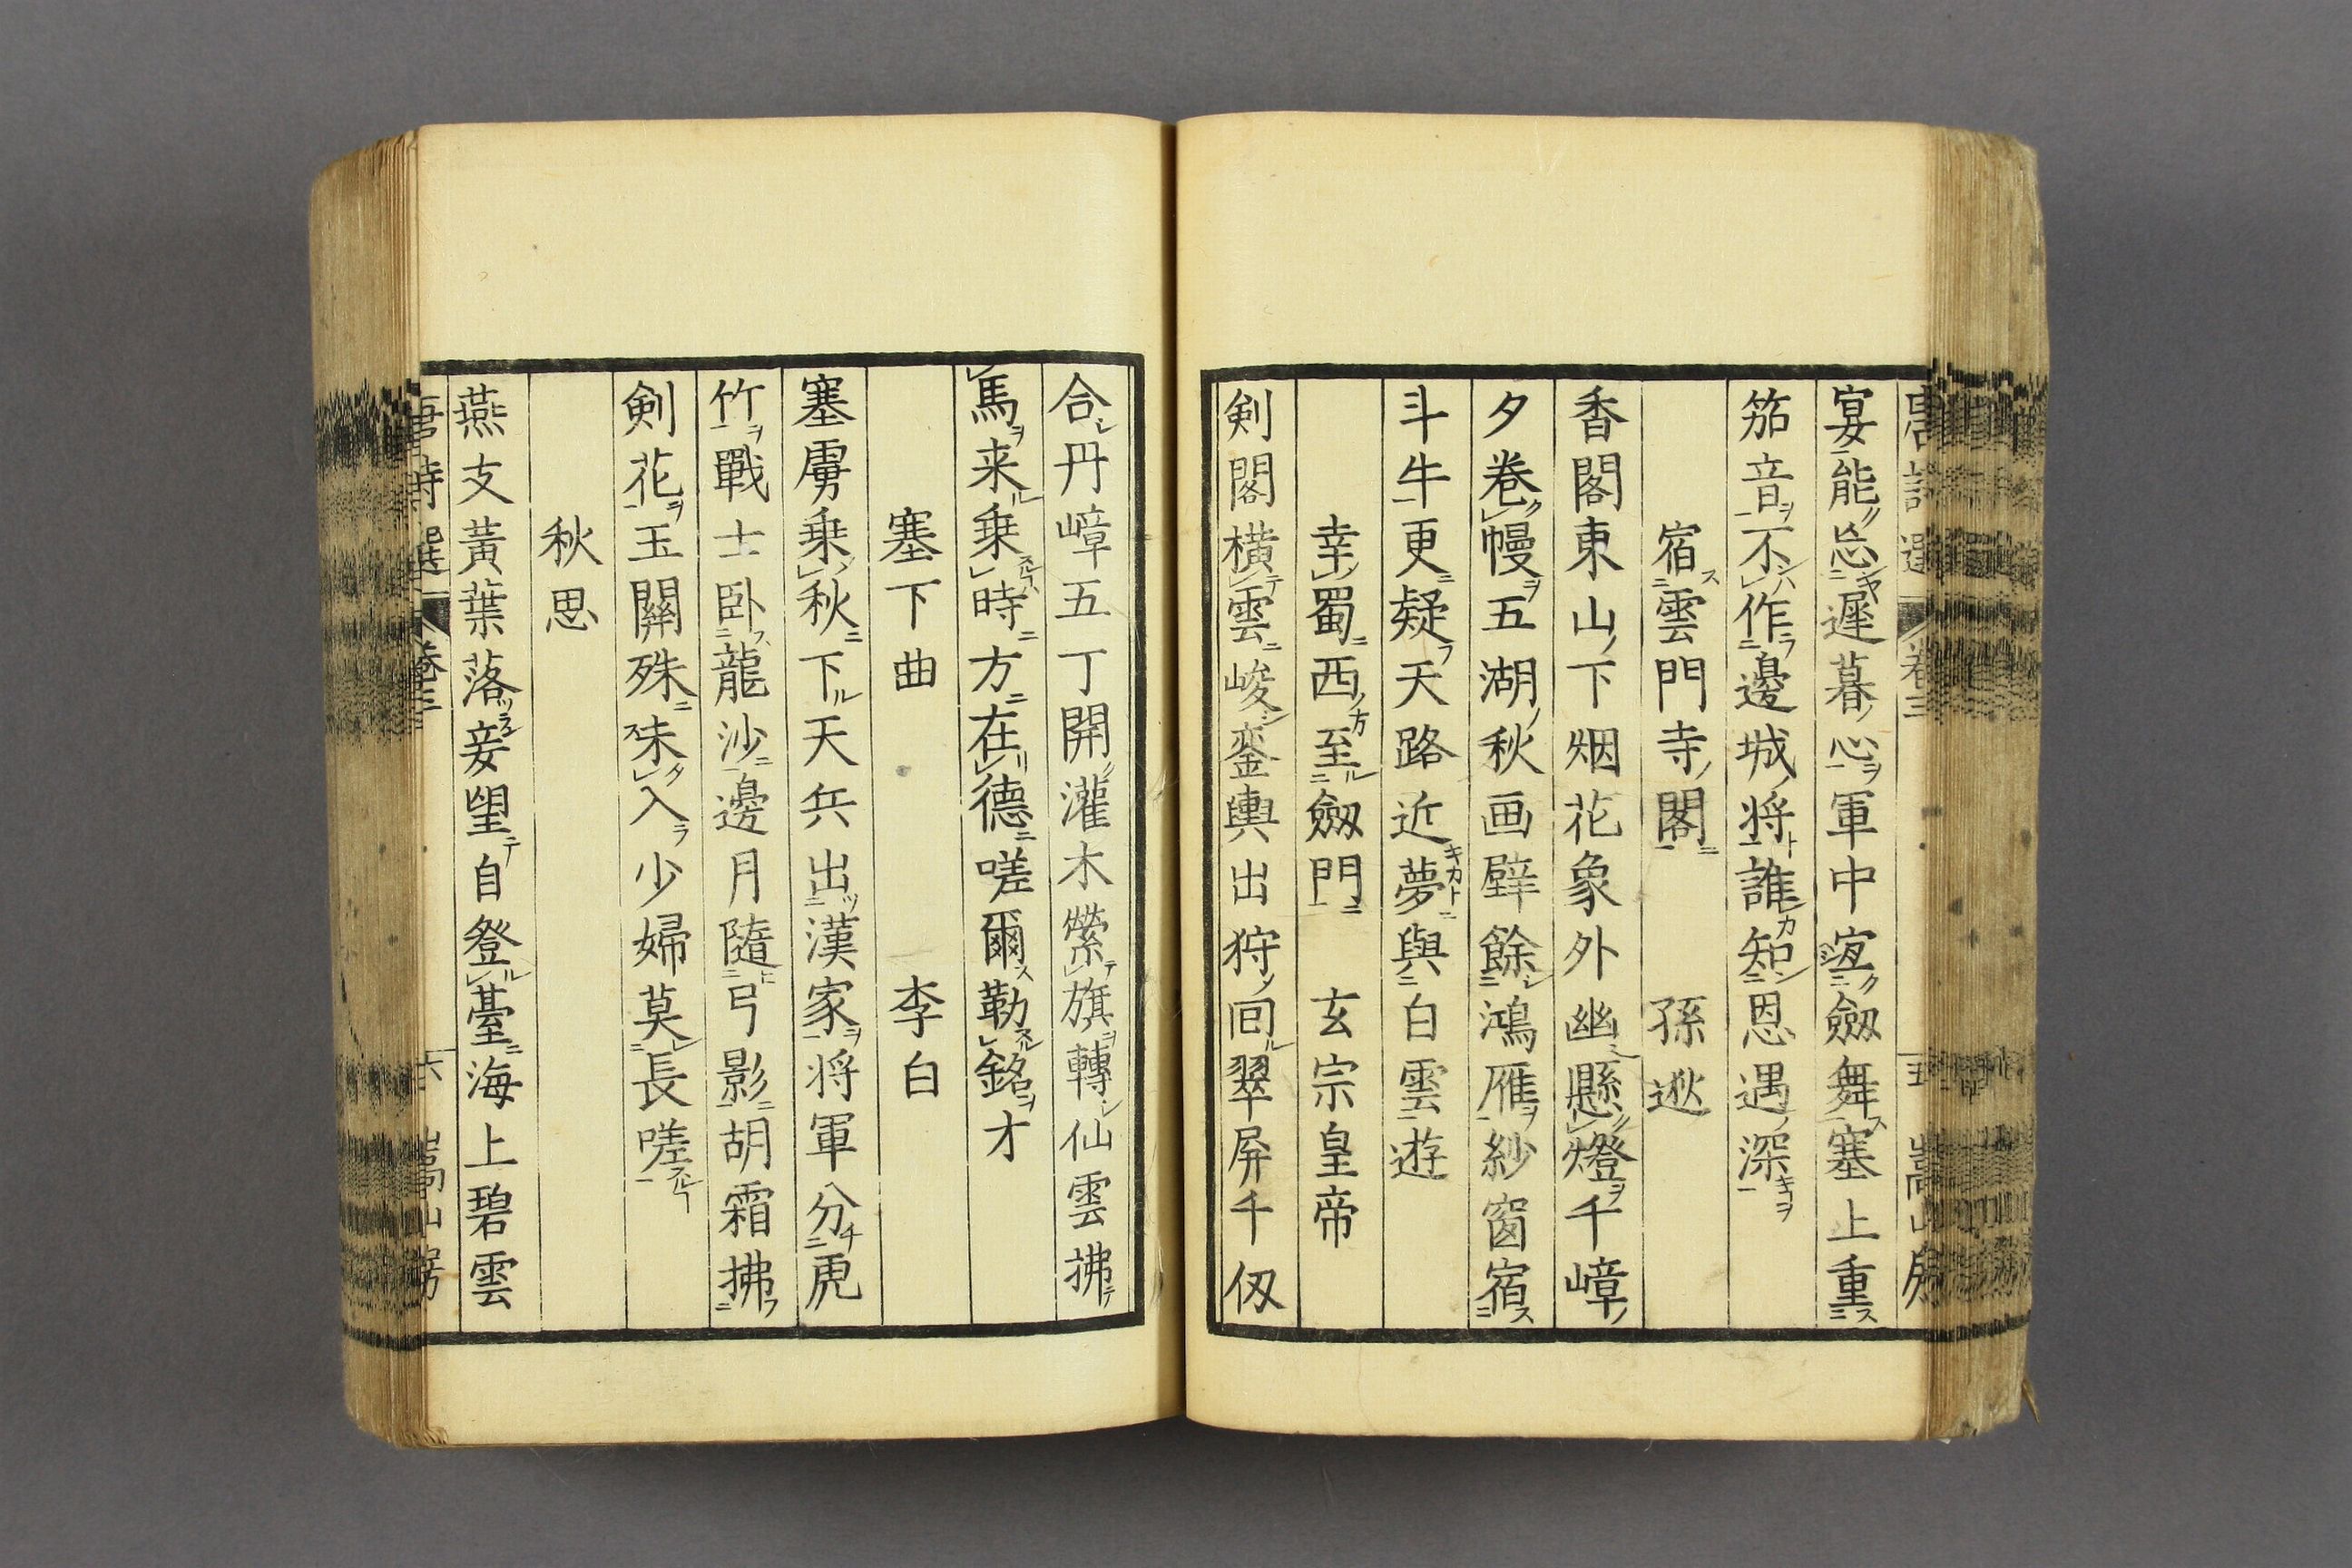 唐詩選 卷三 五 嵩山房
宴能忘遲暮心軍中宐劔舞塞上重
笳音不作邊城將誰知恩遇深
宿雲門寺閣 孫逖
香閣東山下烟花象外幽懸燈千嶂
夕卷幔五湖秋画壁餘鴻雁紗窗宿
斗牛更疑天路近夢與白雲遊
幸蜀西至劔門 玄宗皇帝
剣閣横雲峻鑾輿出狩回翠屏千仭
合丹嶂五丁開灌木縈旗轉仙雲拂
馬来乗時方在德嗟爾勒銘才
塞下曲 李白
塞虜乗秋下天兵出漢家将軍分虎
竹戰士卧龍沙邊月隨弓影胡霜拂
剣花玉關殊未入少婦莫長嗟
秋思
燕支黃葉落妾望自登臺海上碧雲
唐詩選 卷三 六 嵩山房